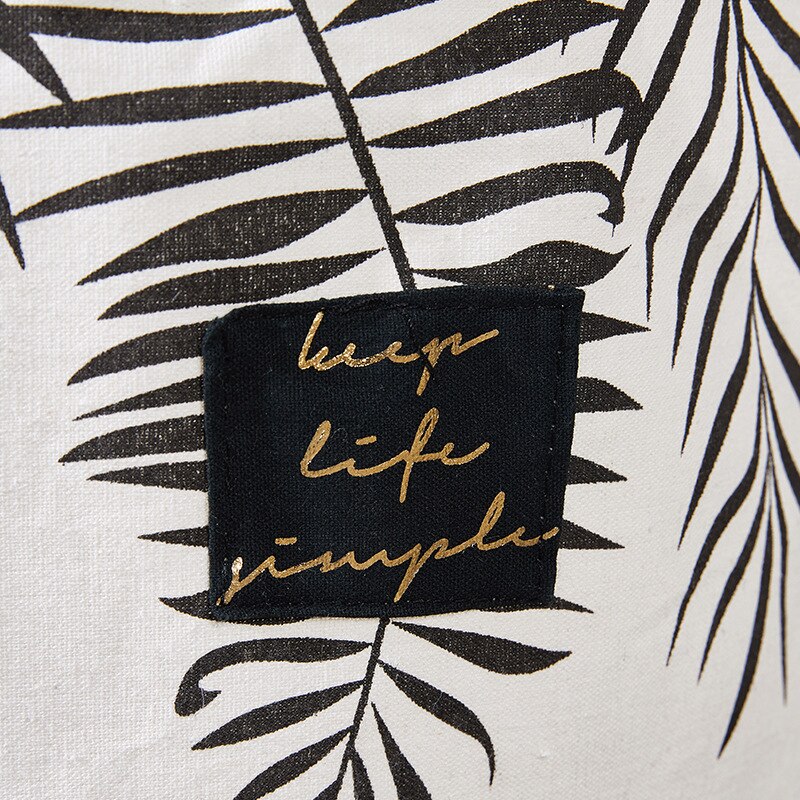 keep
life
simple.